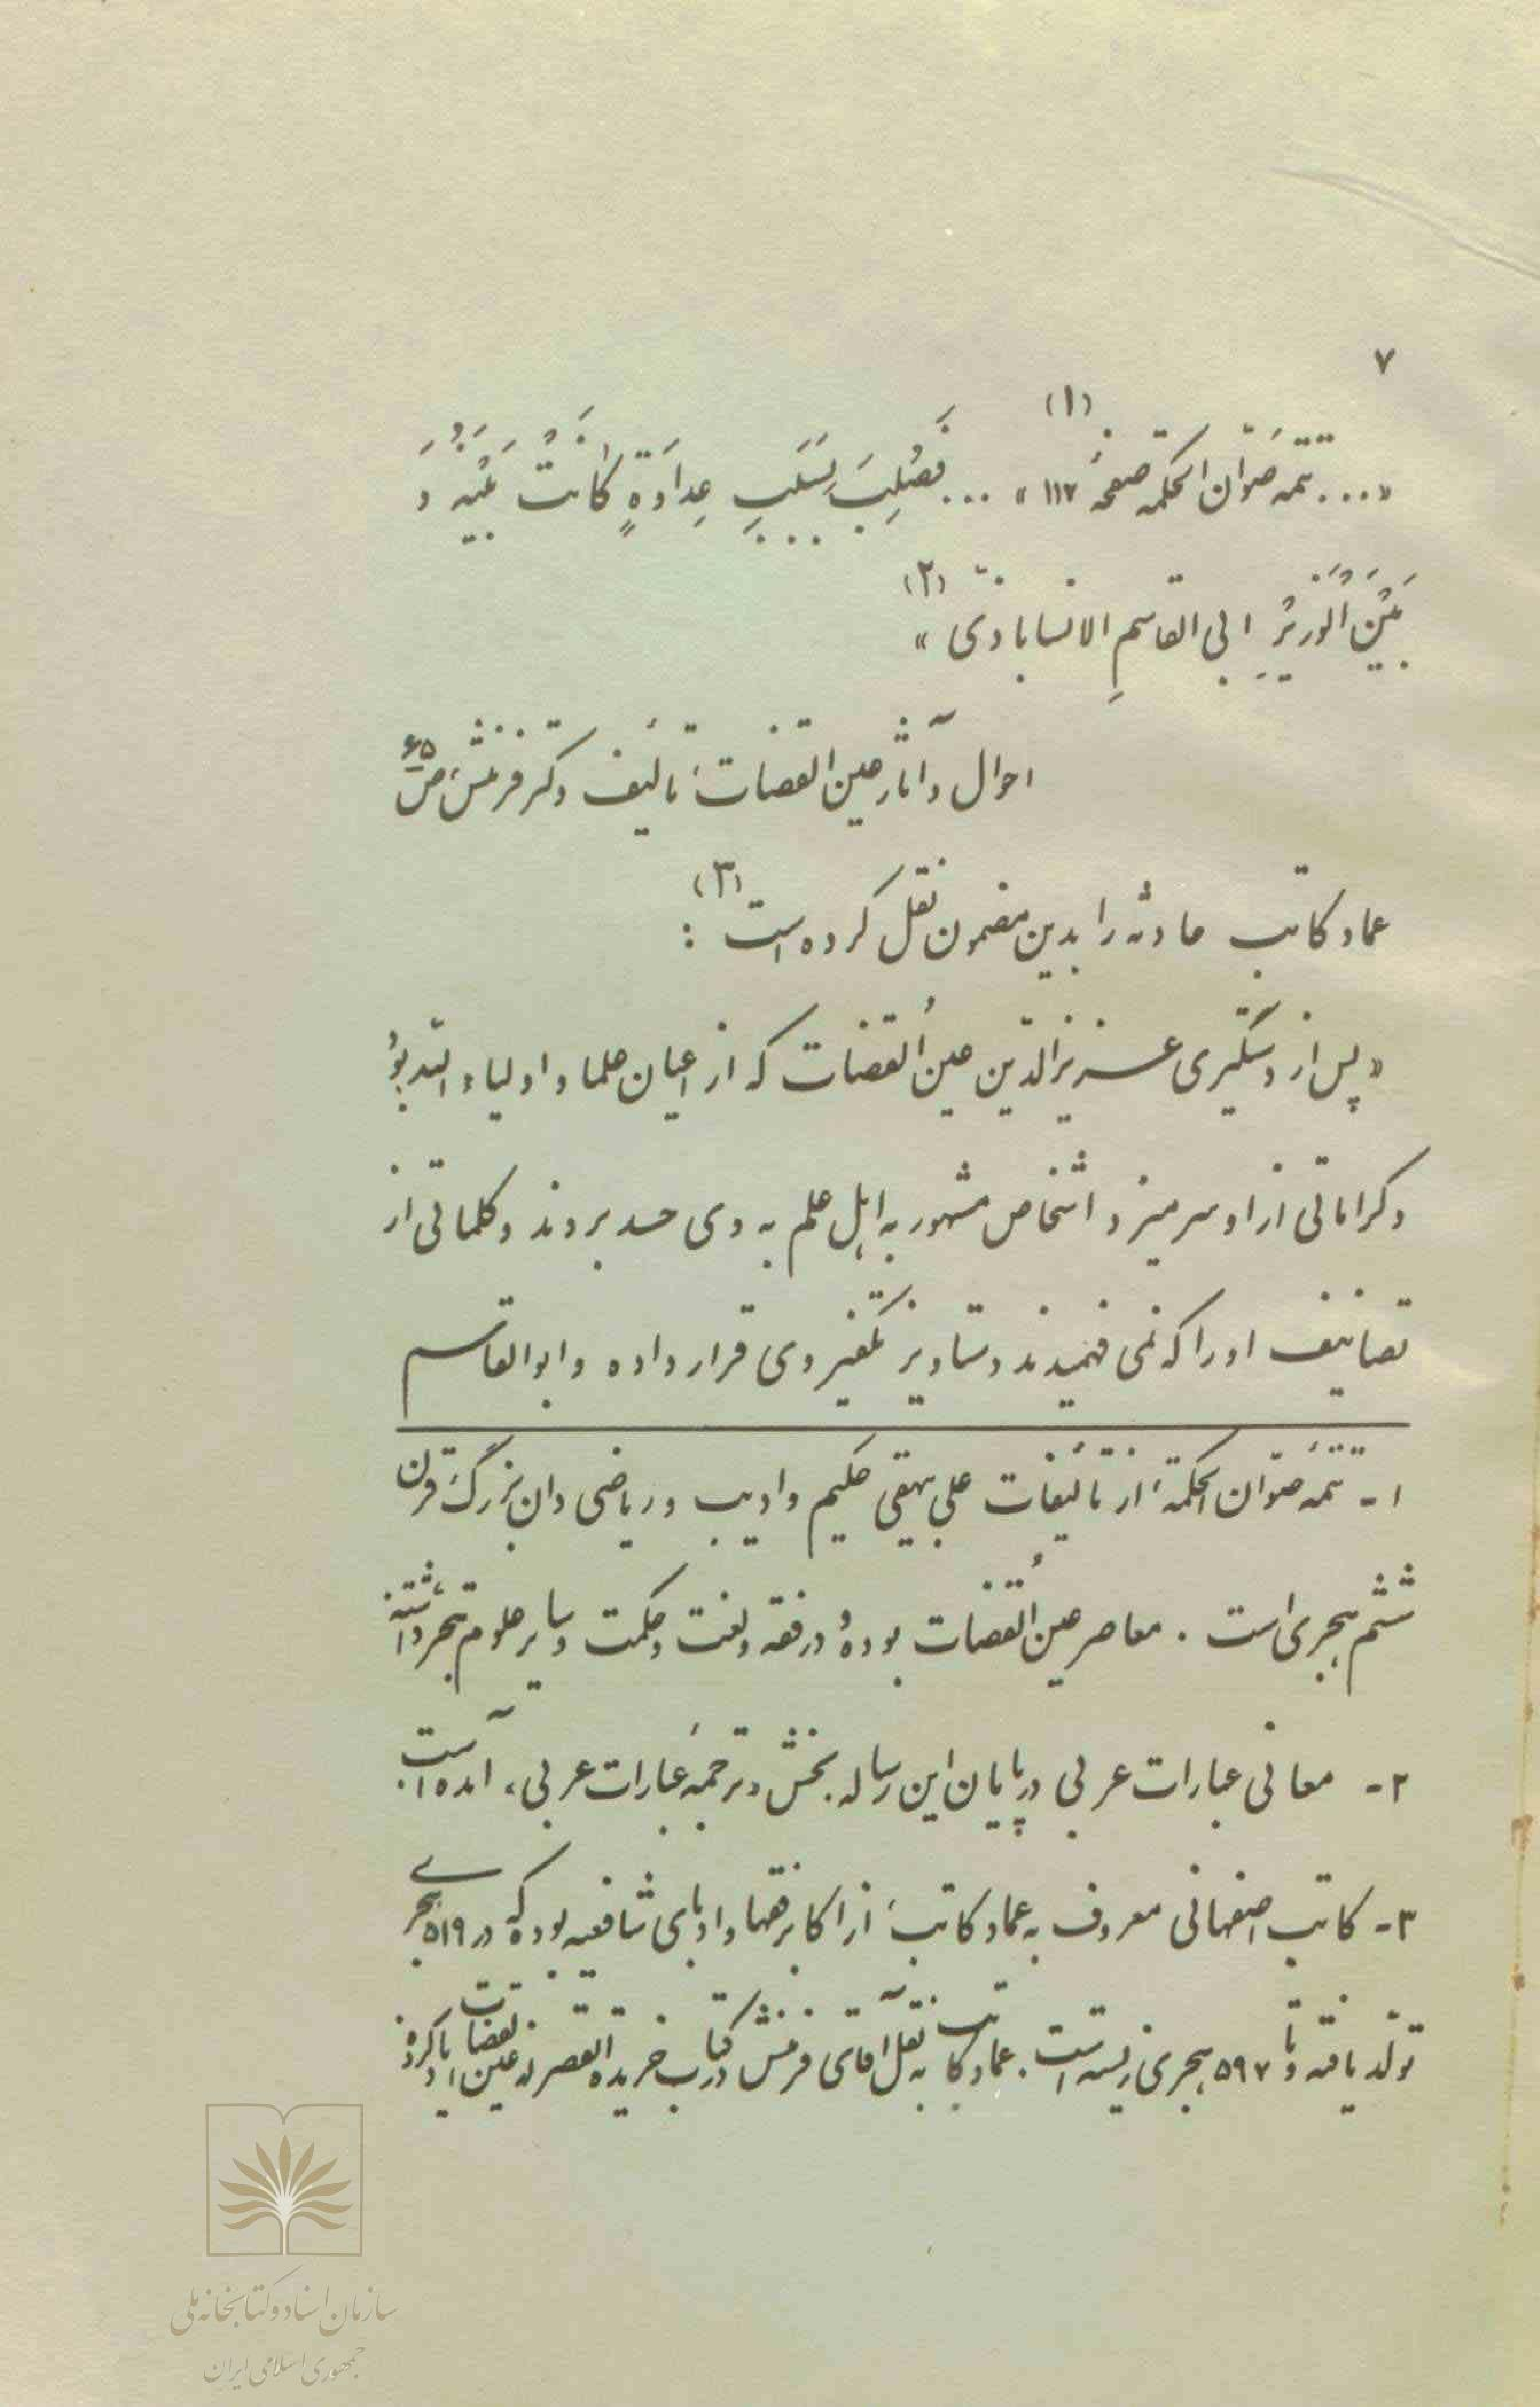 ۷
«... تتمه صوّان الحکمه صفحهٔ ۱۱۷» (۱) ... فَصُلِبَ بِسَبَبِ عِداوَةٍ کانَتْ بَیْنَهُ وَ
بَیْنَ الْوَزیْرِ ابی القاسمِ الانسابادیّ» (۲)
احوال و آثار عین القضات، تألیف دکتر فرمنش، ص ۶۵
عماد کاتب حادثه را بدین مضمون نقل کرده است (۳) :
«پس از دستگیری عزیزالدّین عینُ القضات که از اعیان علما و اولیاء اللّه بود
و کراماتی از او سر میزد اشخاص مشهور به اهل علم به وی حسد بردند و کلماتی از
تصانیف او را که نمی فهمیدند دستاویز تکفیر وی قرار داده و ابوالقاسم
۱ - تتمه صوّان الحکمة، از تألیفات علی بیهقی حکیم و ادیب و ریاضی دان بزرگ قرن
ششم هجری است . معاصر عینُ القضات بوده و در فقه و لغت و حکمت و سایر علوم تبحر داشته
۲ - معانی عبارات عربی در پایان این رساله بخش «ترجمهٔ عبارات عربی» آمده است.
۳ - کاتب اصفهانی معروف به عماد کاتب، از اکابر فقها و ادبای شافعیه بوده که در ۵۱۹ هجری
تولّد یافته و تا ۵۹۷ هجری زیسته است. عماد کاتب به نقل آقای فرمنش در کتاب خریدة القصر از عین القضات یاد کرده
سازمان اسناد و کتابخانه ملی
جمهوری اسلامی ایران